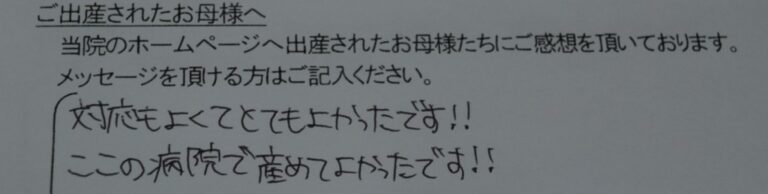 ご出産されたお母様へ
当院のホームページへ出産されたお母様たちにご感想を頂いております。
メッセージを頂ける方はご記入ください。
対応もよくてとてもよかったです!!
ここの病院で産めてよかったです!!